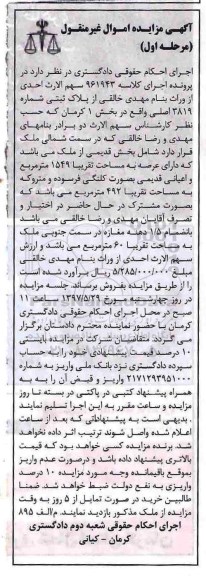 آگهی مزایده اموال غیرمنقول
(مرحله اول)
اجرای احکام حقوقی دادگستری در نظر دارد در
پرونده اجرای کلاسه ۹۶۱۹۴۳ سهم الارث احدی
از وراث بنام مهدی خالقی از پلاک ثبتی شماره
۳۸۱۹ اصلی واقع در بخش ۱ کرمان که حسب
نظر کارشناس سهم الارث دو برادر بنامهای
مهدی و رضا خالقی که در سمت شمالی ملک
قرار دارد شامل بخش قدیمی از ملک می باشد
که دارای عرصه به مساحت تقریبا ۱۵۴۹ مترمربع
و اعیانی قدیمی بصورت کلنگی فرسوده و متروکه
به مساحت تقریبا ۴۹۲ مترمربع می باشد که
بصورت مشترک در حال حاضر در اختیار و
تصرف آقایان مهدی و رضا خالقی می باشد
بانضمام ۱/۵ دهنه مغازه در سمت جنوبی ملک
به مساحت تقریبی ۶۰ مترمربع می باشد و ارزش
سهم الارث احدی از وراث بنام مهدی خالقی
مبلغ ۵/۲۸۵/۰۰۰/۰۰۰ ریال برآورد شده است
را از طریق مزایده بفروش برساند. جلسه مزایده
در روز چهارشنبه مورخ ۱۳۹۷/۵/۲۹ ساعت ۱۱
صبح در محل اجرای احکام حقوقی دادگستری
کرمان با حضور نماینده محترم دادستان برگزار
می گردد. متقاضیان شرکت در مزایده بایستی
۱۰ درصد قیمت پیشنهادی خود را به حساب
سپرده دادگستری نزد بانک ملی واریز به شماره
۲۱۷۱۲۹۳۹۵۱۰۰۰ واریز و قبض آن را به به
همراه پیشنهاد کتبی در پاکتی در بسته تا روز
مزایده و ساعت مقرر به این اجرا تسلیم نمایند
. بدیهی است به پیشنهاداتی که بعد از ساعت
اعلام شده واصل شوند ترتیب اثر داده نخواهد
شد. برنده مزایده کسی خواهد بود که قیمت
بالاتری پیشنهاد داده باشد و درصورت عدم واریز
بموقع باقیمانده وجه مورد مزایده ۱۰ درصد
واریزی به نفع دولت ضبط خواهد شد. ضمنا
طالبین خرید در صورت تمایل از ۵ روز به وقت
مزایده از ملک مذکور بازدید نمایند. م/الف ۸۹۵
اجرای احکام حقوقی شعبه دوم دادگستری
کرمان - کیانی